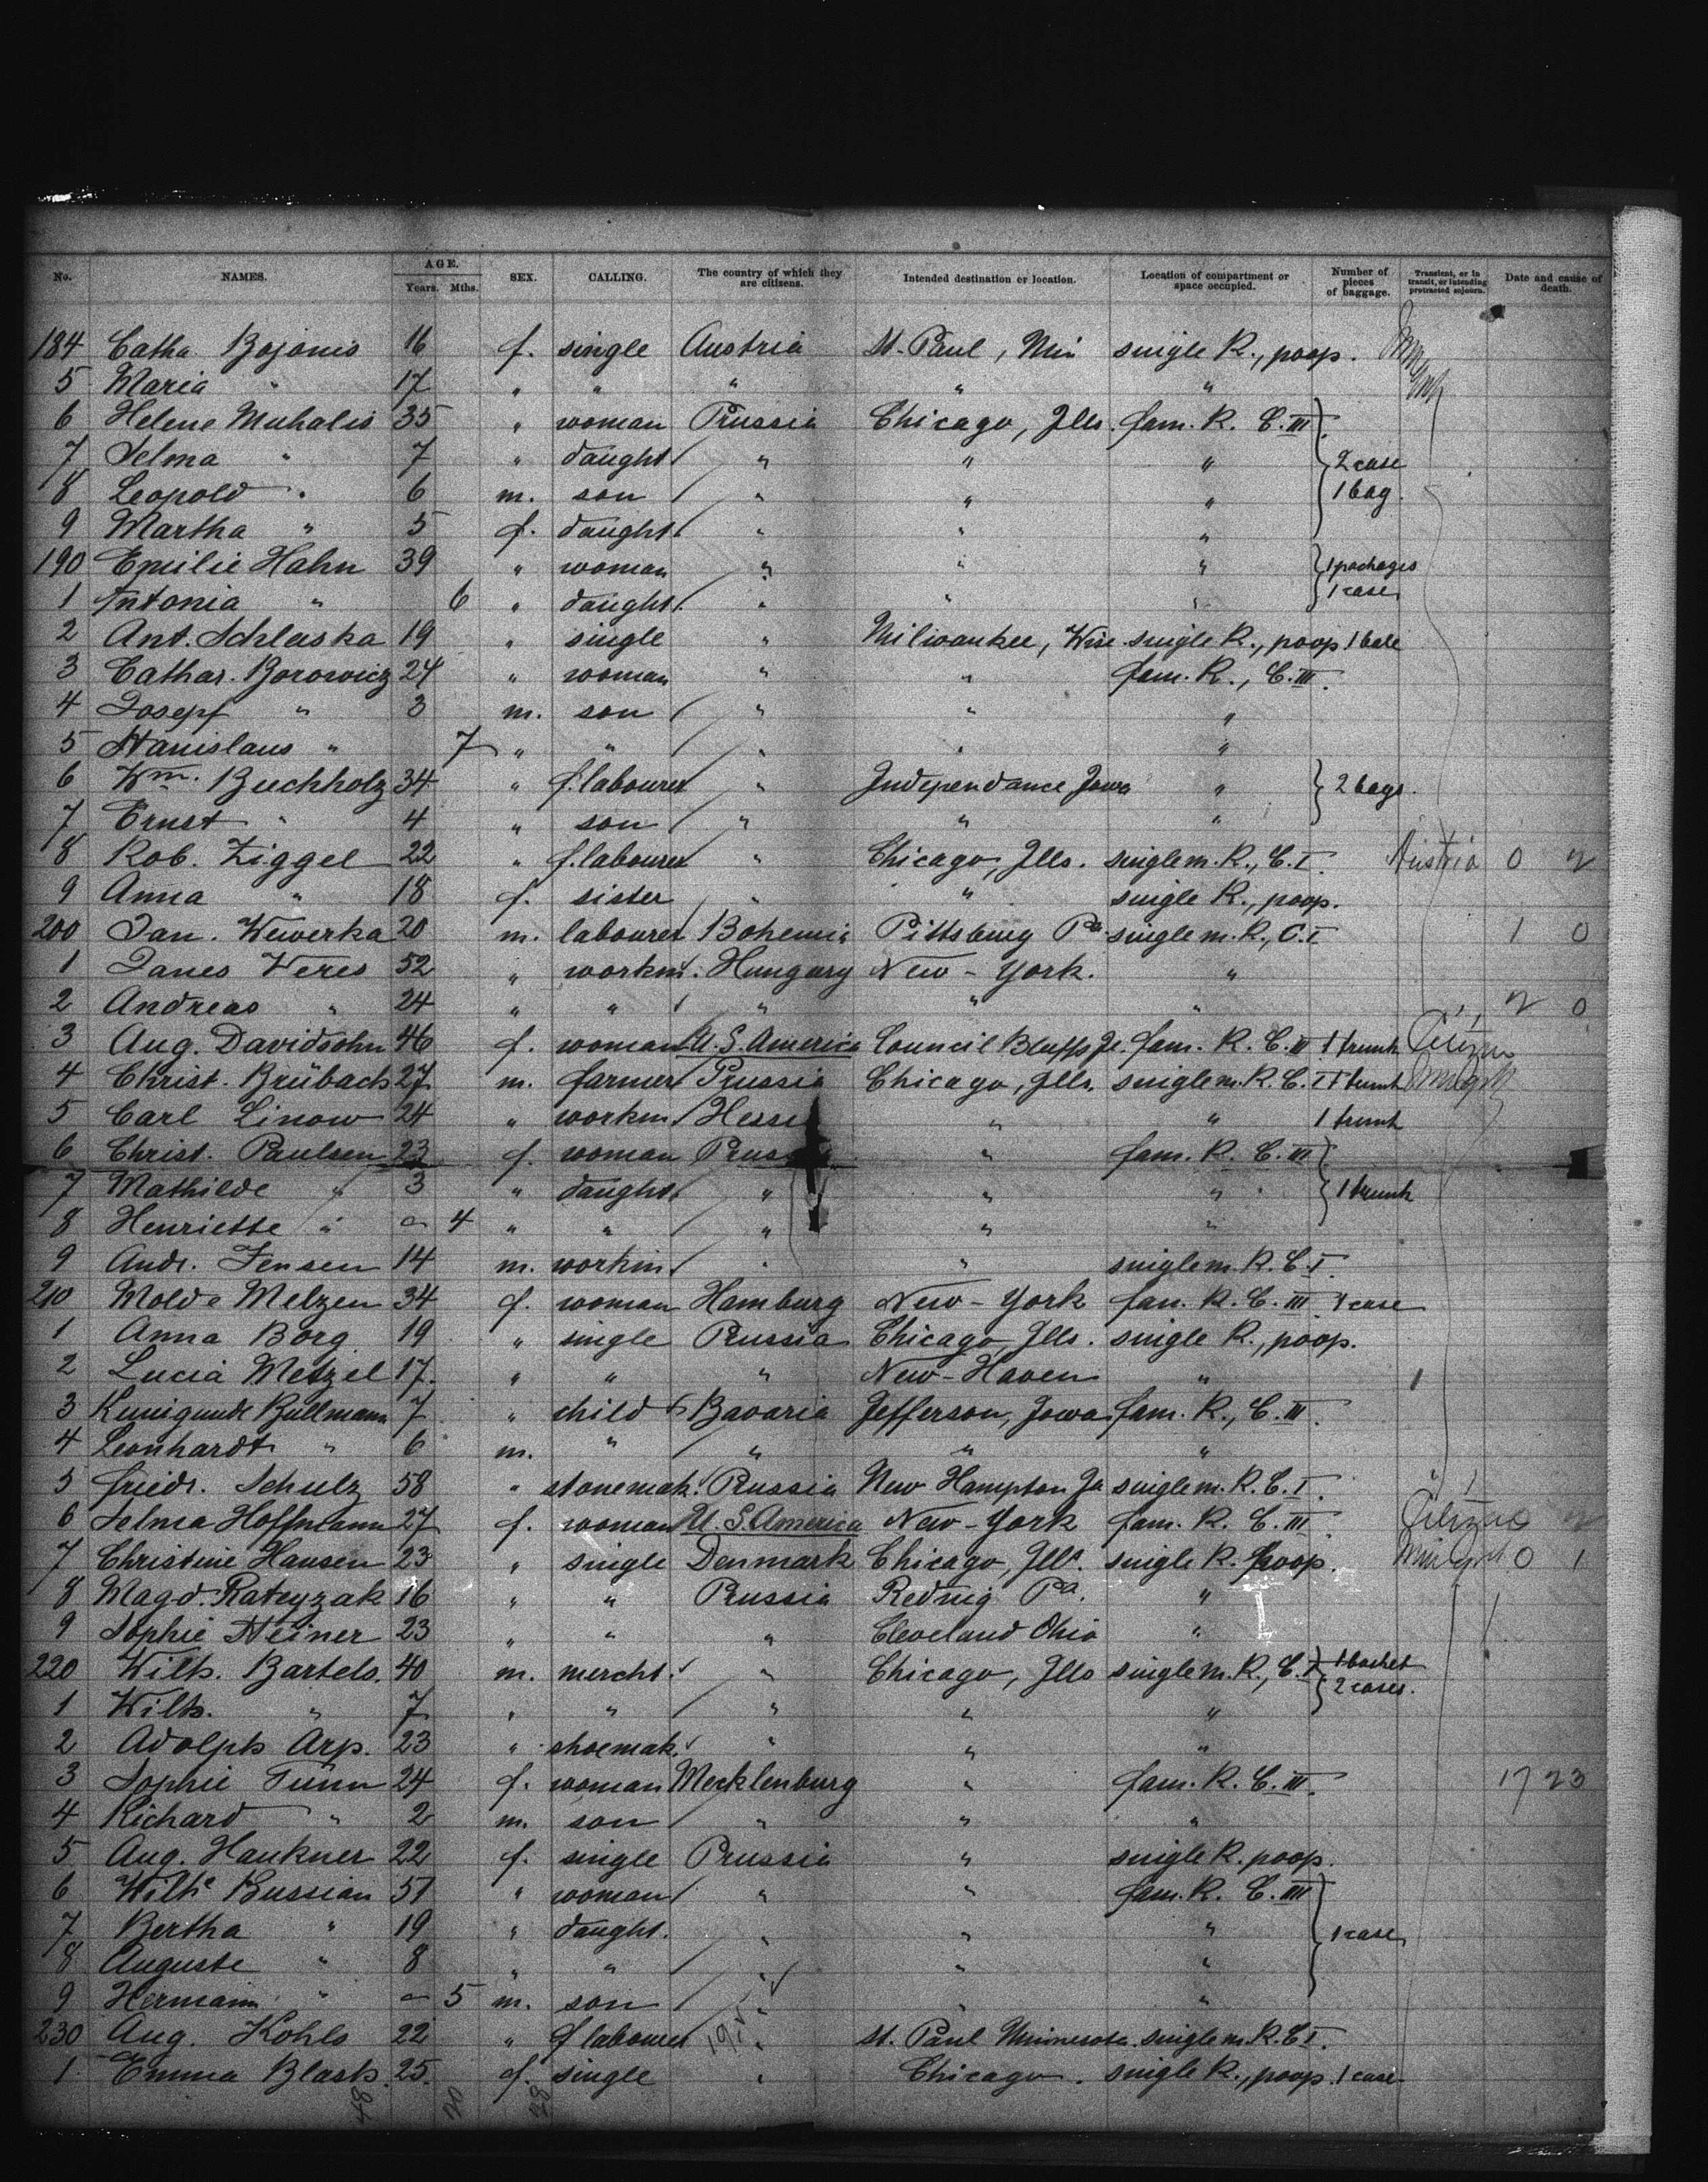 No. NAMES. AGE. Years. Mths. SEX. CALLING. The country of which they are citizens. Intended destination or location. Location of compartment or space occupied. Number of pieces of baggage. Transient, or in transit, or intending protracted sojourn. Date and cause of death.
184 Catha Bojanis 16 f. single Austria St. Paul, Min single R., poop.
5 Maria " 17 " " " " "
6 Helene Muhalis 35 " woman Prussia Chicago, Ills. fam. R. C. III
7 Selma " 7 " daught " " " 2 case
8 Leopold " 6 m. son " " " 1 bag.
9 Martha " 5 f. daught " " "
190 Emilie Hahn 39 " woman " " " 1 packages
1 Antonia " 6 " daught. " " " 1 case
2 Ant. Schlaska 19 " single " Milwaukee, Wisc single R., poop 1 bale
3 Cathar. Borowicz 24 " woman " " fam. R., C. III.
4 Josepf " 3 m. son " " "
5 Stanislaus " 7 " " " " "
6 Wm. Buchholz 34 " f. labourer " Independance Jowa " 2 bags.
7 Ernst " 4 " son " " "
8 Rob. Ziggel 22 " f. labourer " Chicago, Ills. single m. R., C. I. Austria 0 2
9 Anna " 18 f. sister " " single R., poop.
200 Jan. Wewerka 20 m. labourer Bohemia Pittsburg Pa. single m. R., C. I 1 0
1 Janes Veres 52 " workm. Hungary New-York. "
2 Andreas " 24 " " " " " 2 0
3 Aug. Davidsohn 46 f. woman U. S. America Council Bluffs Ja. fam. R. C. III 1 trunk Citizen
4 Christ. Brübach 27 m. farmer Prussia Chicago, Ills. single m. R. C. I 1 trunk
5 Carl Linow 24 " workm Hesse " " 1 trunk
6 Christ. Paulsen 23 f. woman Pruss " fam. R. C. III
7 Mathilde " 3 " daught. " " " 1 trunk
8 Henriette " – 4 " " " " "
9 Andr. Jensen 14 m. workm. " " single m. R. C. I.
210 Molde Melzen 34 f. woman Hamburg New-York fam. R. C. III 1 case
1 Anna Borg 19 " single Prussia Chicago, Ills. single R., poop.
2 Lucia Metzel 17. " " " New-Haven "
3 Kunigunde Bullmann 7 " child Bavaria Jefferson, Jowa fam. R., C. III.
4 Leonhardt " 6 m. " " " "
5 Friedr. Schulz 58 " stonemak. Prussia New Hampton Ja single m. R. C. I.
6 Selma Hoffmann 27 f. woman U. S. America New-York fam. R. C. III. Citizen
7 Christine Hansen 23 " single Denmark Chicago, Ills. single R. poop. 0 1
8 Magd. Rateyzak 16 " " Prussia Reding Pa. "
9 Sophie Steiner 23 " " " Cleveland Ohio "
220 Wilh. Bartels. 40 m. mercht. " Chicago, Ills single m. R., C. I 1 basket
1 Wilh. " 7 " " " " " 2 cases.
2 Adolph Arp. 23 " shoemak. " " "
3 Sophie Timm 24 f. woman Mecklenburg " fam. R. C. III. 17 23
4 Richard " 2 m. son " " "
5 Aug. Haukner 22 f. single Prussia " single R. poop.
6 Wilhe Bussian 51 " woman " " fam. R. C. III
7 Bertha " 19 " daught. " " " 1 case
8 Auguste " 8 " " " " "
9 Hermann " – 5 m. son " " "
230 Aug. Kohls 22 " f labourer " St. Paul Minnesota single m. R. C. I.
1 Emma Blash. 25. f. single " Chicago. single R., poop. 1 case